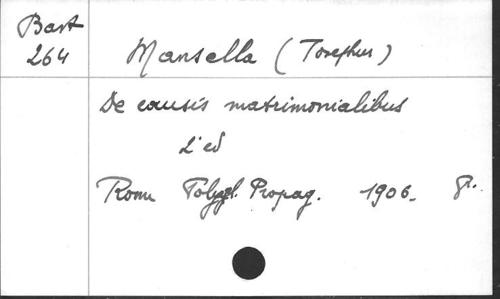 Bart
264
Mansella (Josephus)
De causis matrimonialibus
2' ed
Rome Polygl. Propag. 1906. 8°.